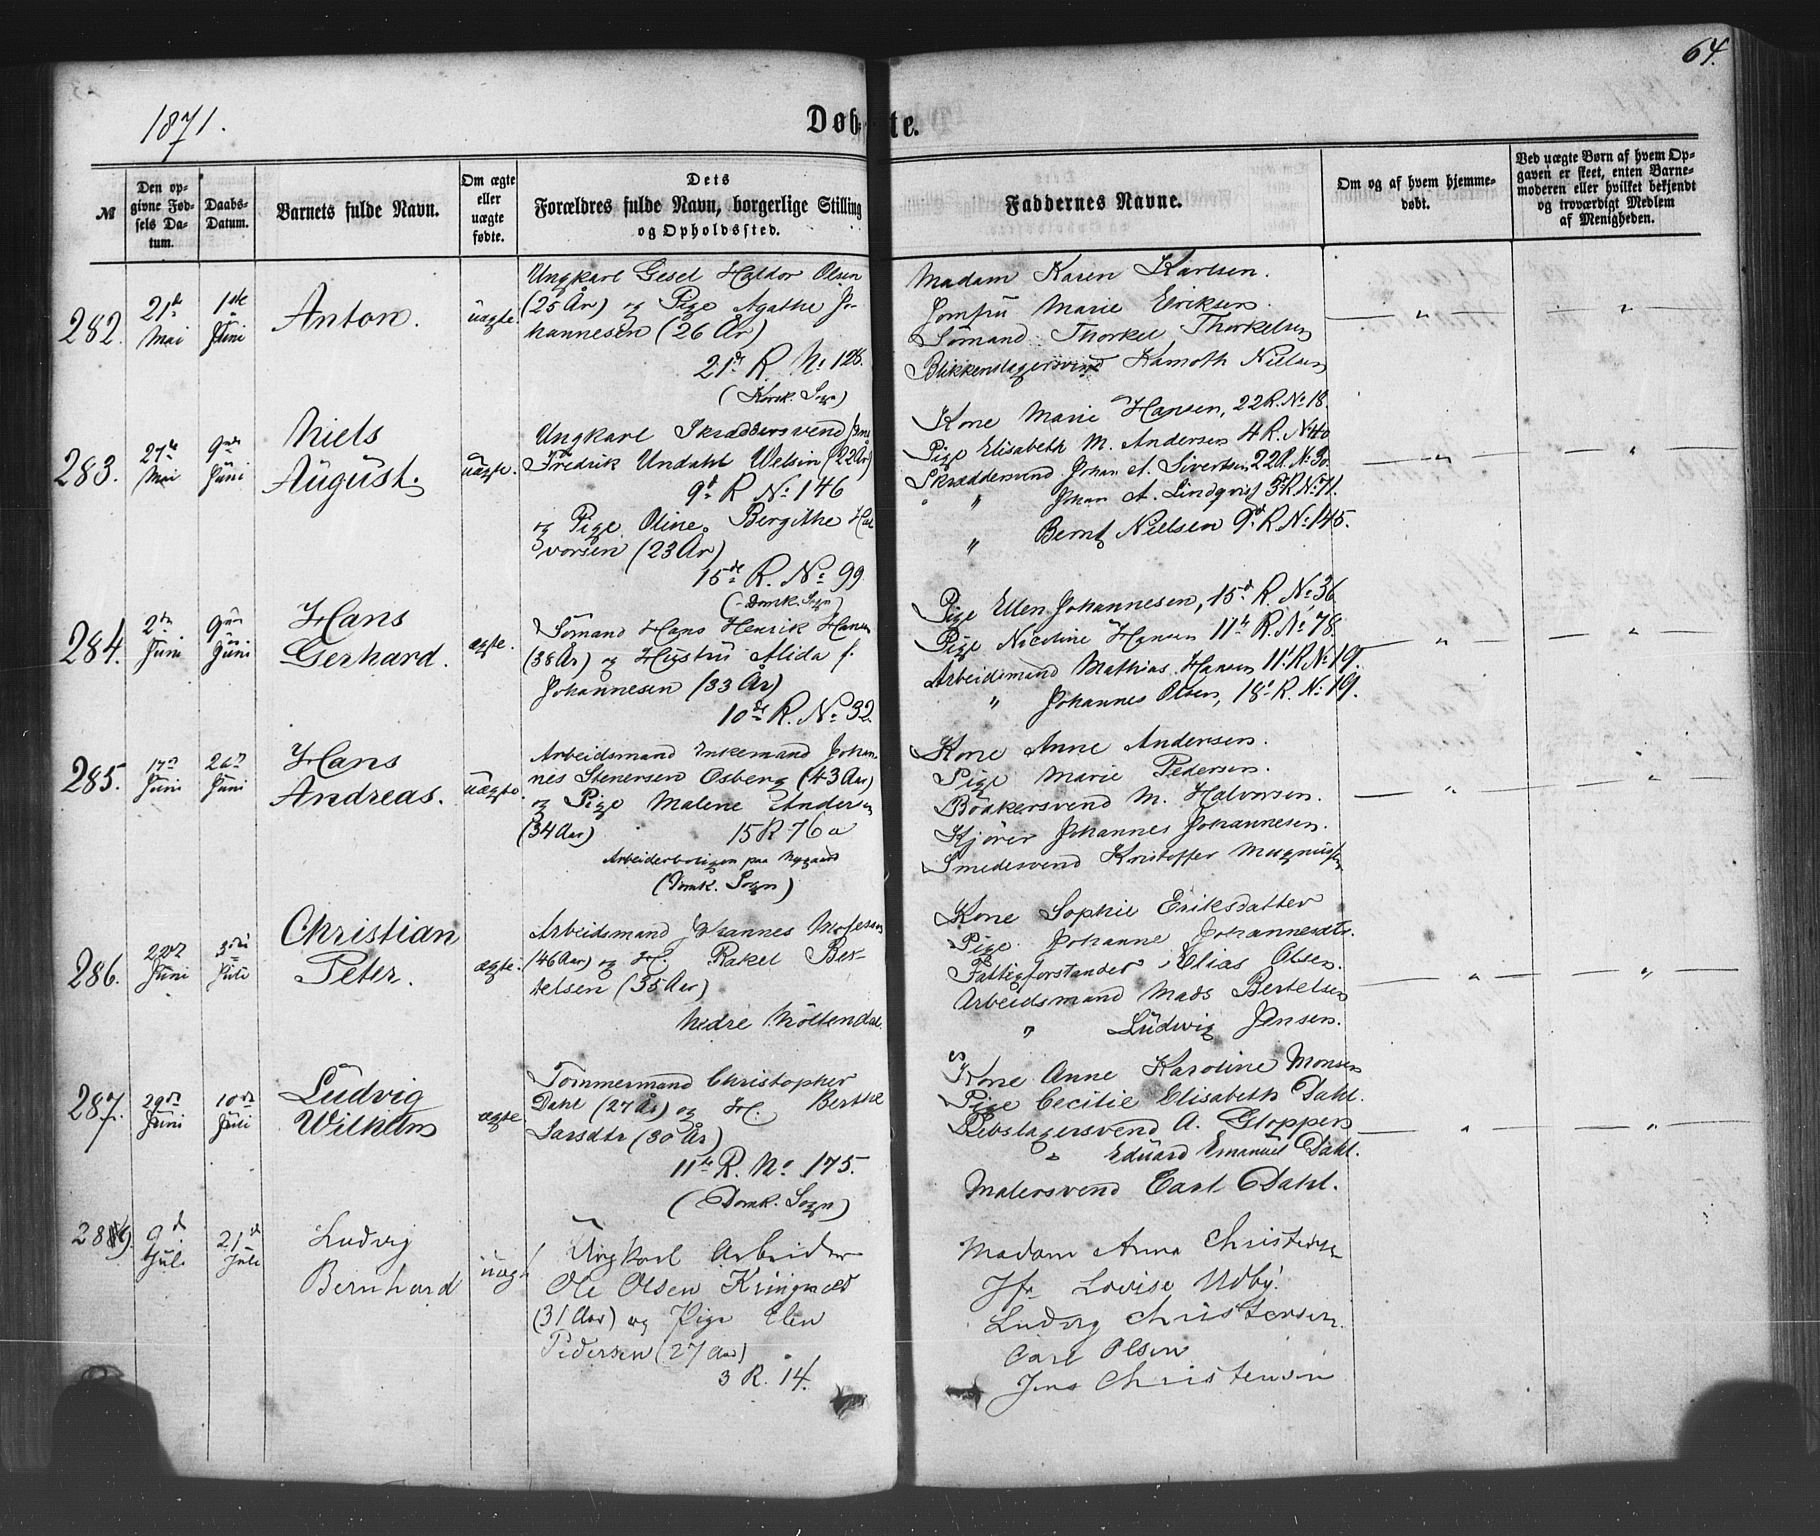 64.
1871.
Døbte.
№
Den opgivne Fødsels Datum.
Daabs-Datum.
Barnets fulde Navn.
Om ægte eller uægte fødte.
Dets
Forældres fulde Navn, borgerlige Stilling
og Opholdssted.
Faddernes Navne.
Om og af hvem hjemmedøbt.
Ved uægte Børn af hvem Opgaven er skeet, enten Barnemoderen eller hvilket bekjendt og troværdigt Medlem af Menigheden.
282.
21de Mai
1ste Juni
Anton.
uægte.
Ungkarl Gesel Haldor Olsen
(25 År) og Pige Agathe Jo-
hannesen (26 År)
21de R. No 128.
(Korsk. Sogn)
Madam Karen Karlsen.
Jomfru Marie Eriksen.
Sømand Thorkel Thorkelsen
Blikkenslagersvend Nielsen
283.
27de Mai
9nde Juni
Niels
August.
uægte.
Ungkarl Skræddersvend Jens
Fredrik Undahl Welsin (22 År)
9de R No 146
og Pige Oline Bergithe Hal-
vorsen (23 År)
15de R. No 99
(Domk. Sogn)
Kone Marie Hansen, 22 R. No 18.
Pige Elisabeth M. Andersen 4 R. No 40
Skræddersvend Johan A. Sivertsen 22 R. No 30.
" Johan A. Lindqvist 3 R. No 71.
" Bernt Nielsen 9de R. No 145.
284.
2den Juni
9nde Juni
Hans
Gerhard.
ægte.
Sømand Hans Henrik Hansen
(38 År) og Hustru Alida f.
Johannesen (33 År)
10de R. No 32
Pige Ellen Johannesen, 15d R. No 36
Pige Nicoline Hansen 11te R. No 78.
Arbeidsmand Mathias Hansen 11t R. No 19.
" Johannes Olsen, 18d R. No 19.
285.
17de Juni
26de Juni
Hans
Andreas.
uægte
Arbeidsmand Enkemand Johan-
nes Stenersen Osberg (43 Aar)
og Pige Malene Andersen
(34 Aar) 15 R 76 a
Arbeiderboligen paa Nygaard
(Domk. Sogn)
Kone Anne Andersen.
Pige Marie Pedersen.
Bødkersvend M. Halvorsen.
Kjører Johannes Johannesen.
Smedesvend Kristoffer Magnussen
286.
22de Juni
3die Juli
Christian
Peter.
ægte.
Arbeidsmand Johannes Mosesen
(46 Aar) og H. Rakel Ber-
telsen (35 Aar)
Nedre Møllendal.
Kone Sophie Eriksdatter
Pige Johanne Johannesdtr.
Fattigforstander Elias Olsen.
Arbeidsmand Mads Bertelsen
" Ludwig Jensen.
287.
29de Juni
10de Juli
Ludvig
Wilhelm
ægte
Tømmermand Christopher
Dahl (27 År) og H. Berthe
Larsdtr (30 År)
11te R. No 175.
(Domk. Sogn)
Kone Anne Karoline Monsen
Pige Cecilie Elisabeth Dahl.
Rebslagersvend A. Gloppen
" Eduard Emanuel Dahl.
Malersvend Carl Dahl.
289.
9d Juli
21d Juli
Ludvig
Bernhard
uægt
Ungkarl Arbeider
Ole Olsen Kringveld
(31 Aar) og Pige Elen
Pedersen (27 Aar)
3 R. 14.
Madam Anna Christensen
Jfr Lovise Udby.
Ludvig Christensen.
Carl Olsen
Jens Christensen